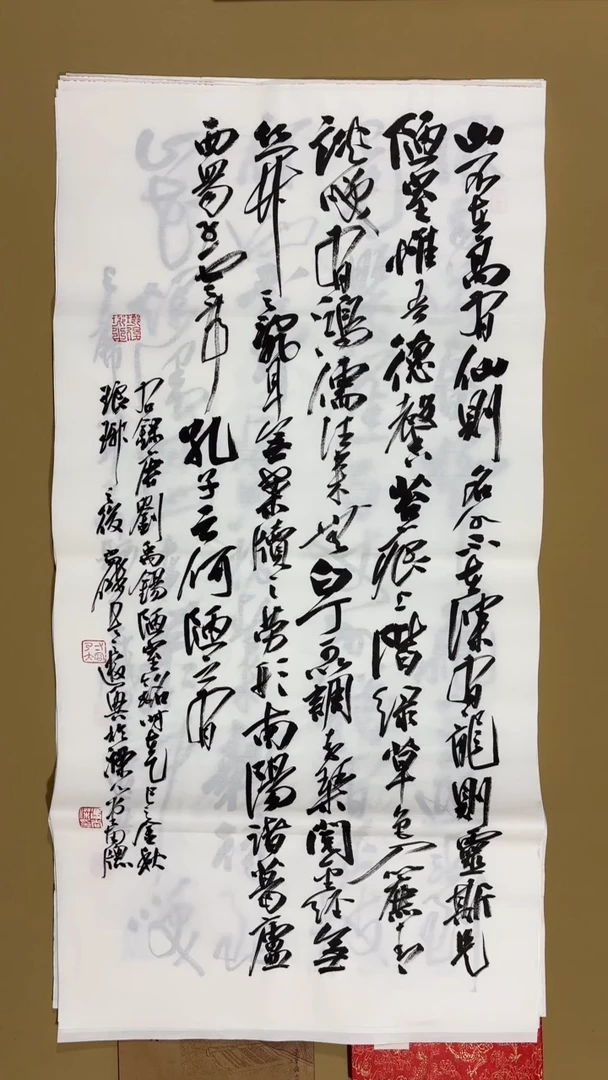 山不在高有仙则名水不在深有龍则靈斯是
陋室惟吾德馨苔痕上階绿草色入簾青
談咲有鴻儒往来無白丁可以調素琴閲金经無
丝竹之亂耳無案牍之劳形南陽諸葛廬
西蜀子雲亭孔子云何陋之有
右錄唐劉禹錫陋室銘时在乙巳之金秋
琅琊之後